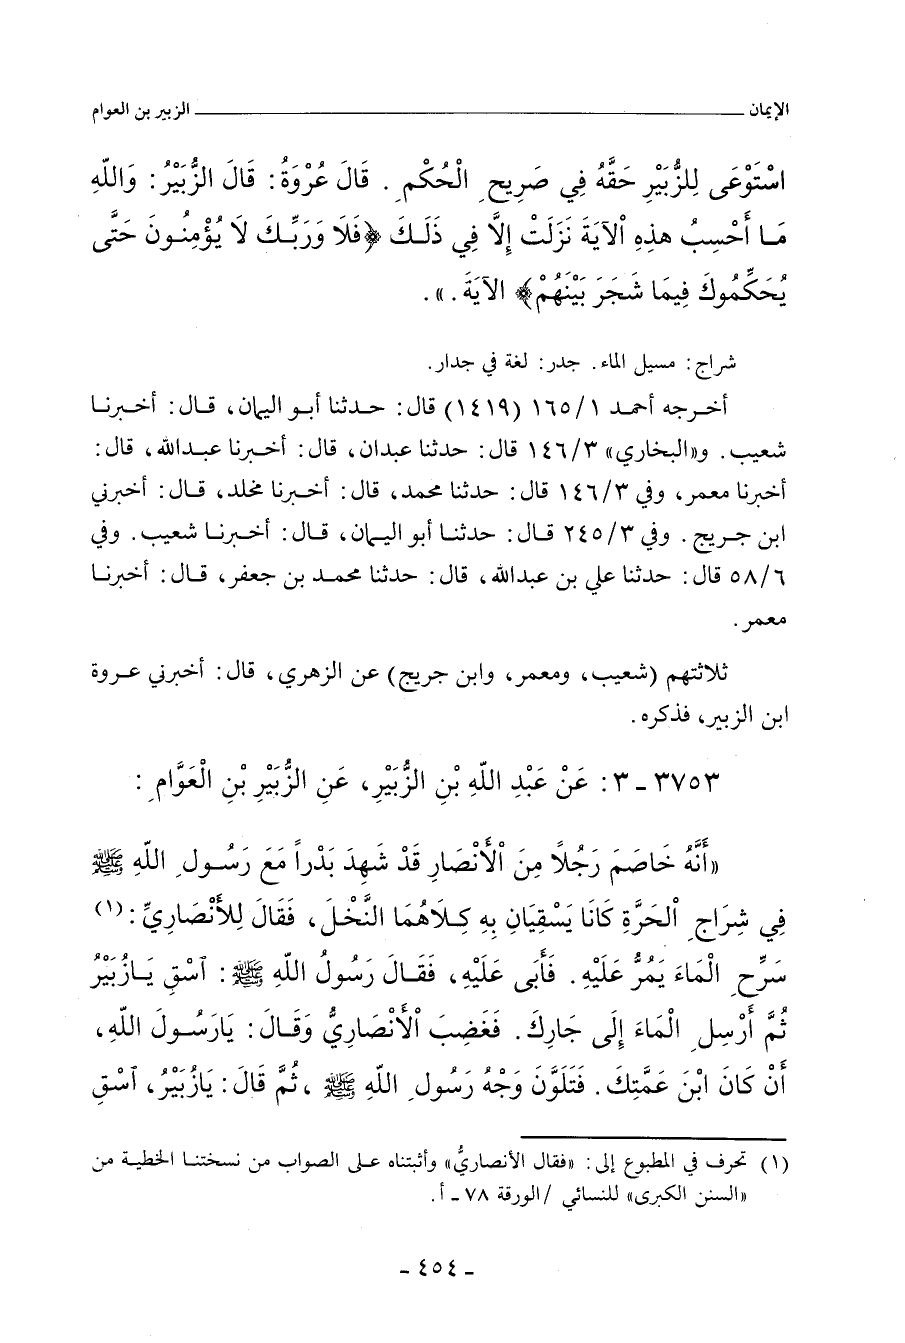 الإيمان ـــــــ الزبير بن العوام
اسْتَوْعَى لِلزُّبَيْرِ حَقَّهُ فِي صَرِيحِ الْحُكْمِ . قَالَ عُرْوَةُ : قَالَ الزُّبَيْرُ : وَاللّهِ
مَا أَحْسِبُ هذِهِ الْآيَةَ نَزَلَتْ إِلَّا فِي ذَلَكَ ﴿فَلَا وَرَبِّكَ لَا يُؤْمِنُونَ حَتَّى
يُحَكِّمُوكَ فِيمَا شَجَرَ بَيْنَهُمْ﴾ الآيَةَ . » .
شراج : مسيل الماء . جدر : لغة في جدار .
أخرجه أحمد ١/١٦٥ (١٤١٩) قال : حدثنا أبو اليمان ، قال : أخبرنا
شعيب . و«البخاري» ٣/١٤٦ قال : حدثنا عبدان ، قال : أخبرنا عبدالله ، قال :
أخبرنا معمر ، وفي ٣/١٤٦ قال : حدثنا محمد ، قال : أخبرنا مخلد ، قال : أخبرني
ابن جريج . وفي ٣/٢٤٥ قال : حدثنا أبو اليمان ، قال : أخبرنا شعيب . وفي
٦/٥٨ قال : حدثنا علي بن عبدالله ، قال : حدثنا محمد بن جعفر ، قال : أخبرنا
معمر .
ثلاثتهم (شعيب ، ومعمر ، وابن جريج) عن الزهري ، قال : أخبرني عروة
ابن الزبير ، فذكره .
٣٧٥٣ ـ ٣ : عَنْ عَبْدِ اللّهِ بْنِ الزُّبَيْرِ ، عَنِ الزُّبَيْرِ بْنِ الْعَوَّامِ :
«أَنَّهُ خَاصَمَ رَجُلاً مِنَ الْأَنْصَارِ قَدْ شَهِدَ بَدْراً مَعَ رَسُولِ اللّهِ ﷺ
فِي شِرَاجِ الْحَرَّةِ كَانَا يَسْقِيَانِ بِهِ كِلَاهُمَا النَّخْلَ ، فَقَالَ لِلأَنْصَارِيِّ : (١)
سَرِّحِ الْمَاءَ يَمُرُّ عَلَيْهِ . فَأَبَى عَلَيْهِ ، فَقَالَ رَسُولُ اللّهِ ﷺ : اسْقِ يَازُبَيْرُ
ثُمَّ أَرْسِلِ الْمَاءَ إِلَى جَارِكَ . فَغَضِبَ الْأَنْصَارِيُّ وَقَالَ : يَارَسُولَ اللّهِ ،
أَنْ كَانَ ابْنَ عَمَّتِكَ . فَتَلَوَّنَ وَجْهُ رَسُولِ اللّهِ ﷺ ، ثُمَّ قَالَ : يَازُبَيْرُ ، اسْقِ
(١) تحرف في المطبوع إلى : «فقال الأنصاريُّ» وأثبتناه على الصواب من نسختنا الخطية من
«السنن الكبرى» للنسائي /الورقة ٧٨ ـ أ .
ـ ٤٥٤ ـ